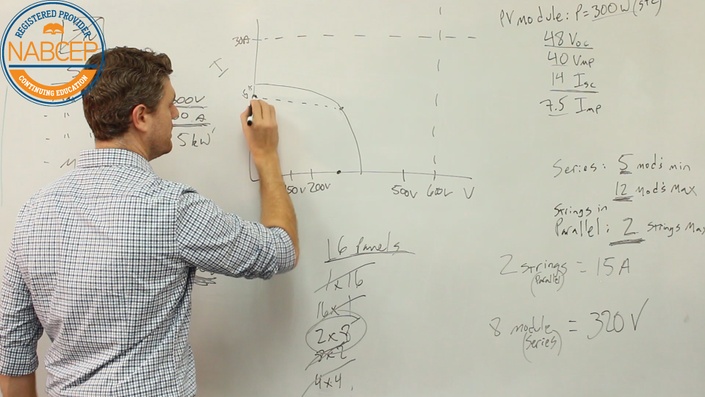 REGISTERED PROVIDER
NABCEP
CONTINUING EDUCATION
600V
5 kW
30A
I
150V 200V 500V 600V V
16 Panels
1 x 16
16 x 1
2 x 8
8 x 2
4 x 4
PV module: P = 300W (STC)
48 Voc
40 Vmp
14 Isc
7.5 Imp
Series: 5 mod's min
12 mod's Max
Strings in
Parallel: 2 strings Max
2 strings = 15A
(Parallel)
8 module = 320V
(Series)